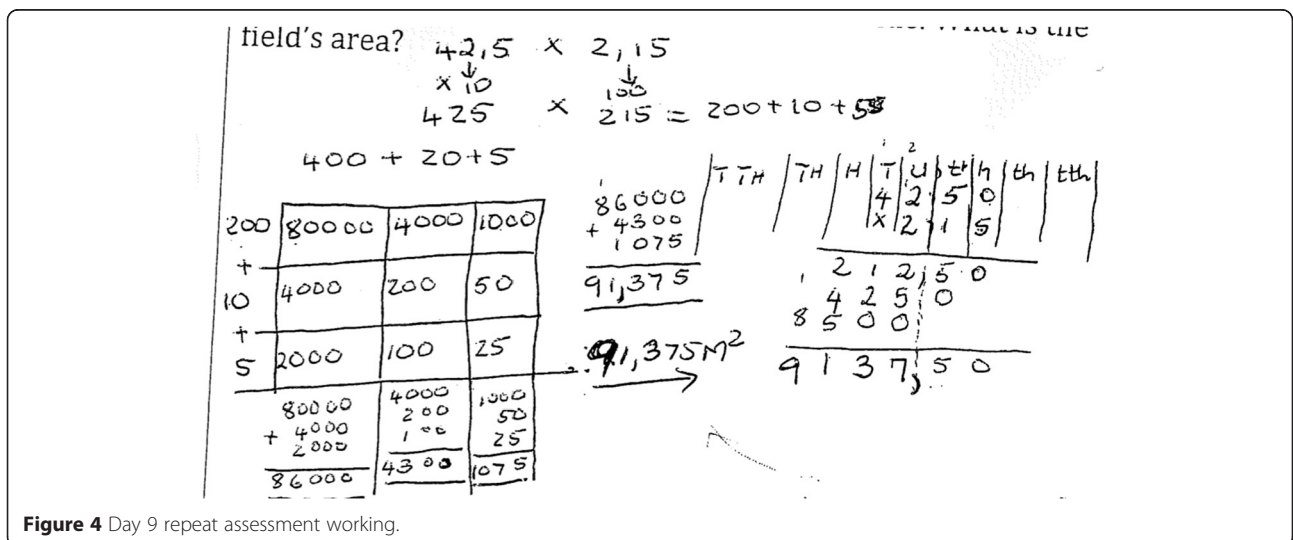 field's area?
is the
42,5 × 2,15
↓ ↓
×10 100
425 × 215 = 200+10+5
400 + 20+5
200 80000 4000 1000
+
10 4000 200 50
+
5 2000 100 25
80000 4000 1000
+ 4000 200 50
2000 100 25
86000 4300 1075
1
86000
+ 4300
1075
91,375
91,375M²
1 2
T TH TH H T U th h th tth
4 2 5 0
× 2 1 5
1 2 1 2,5 0
4 2 5 0
8 5 0 0
9 1 3 7,5 0
Figure 4 Day 9 repeat assessment working.